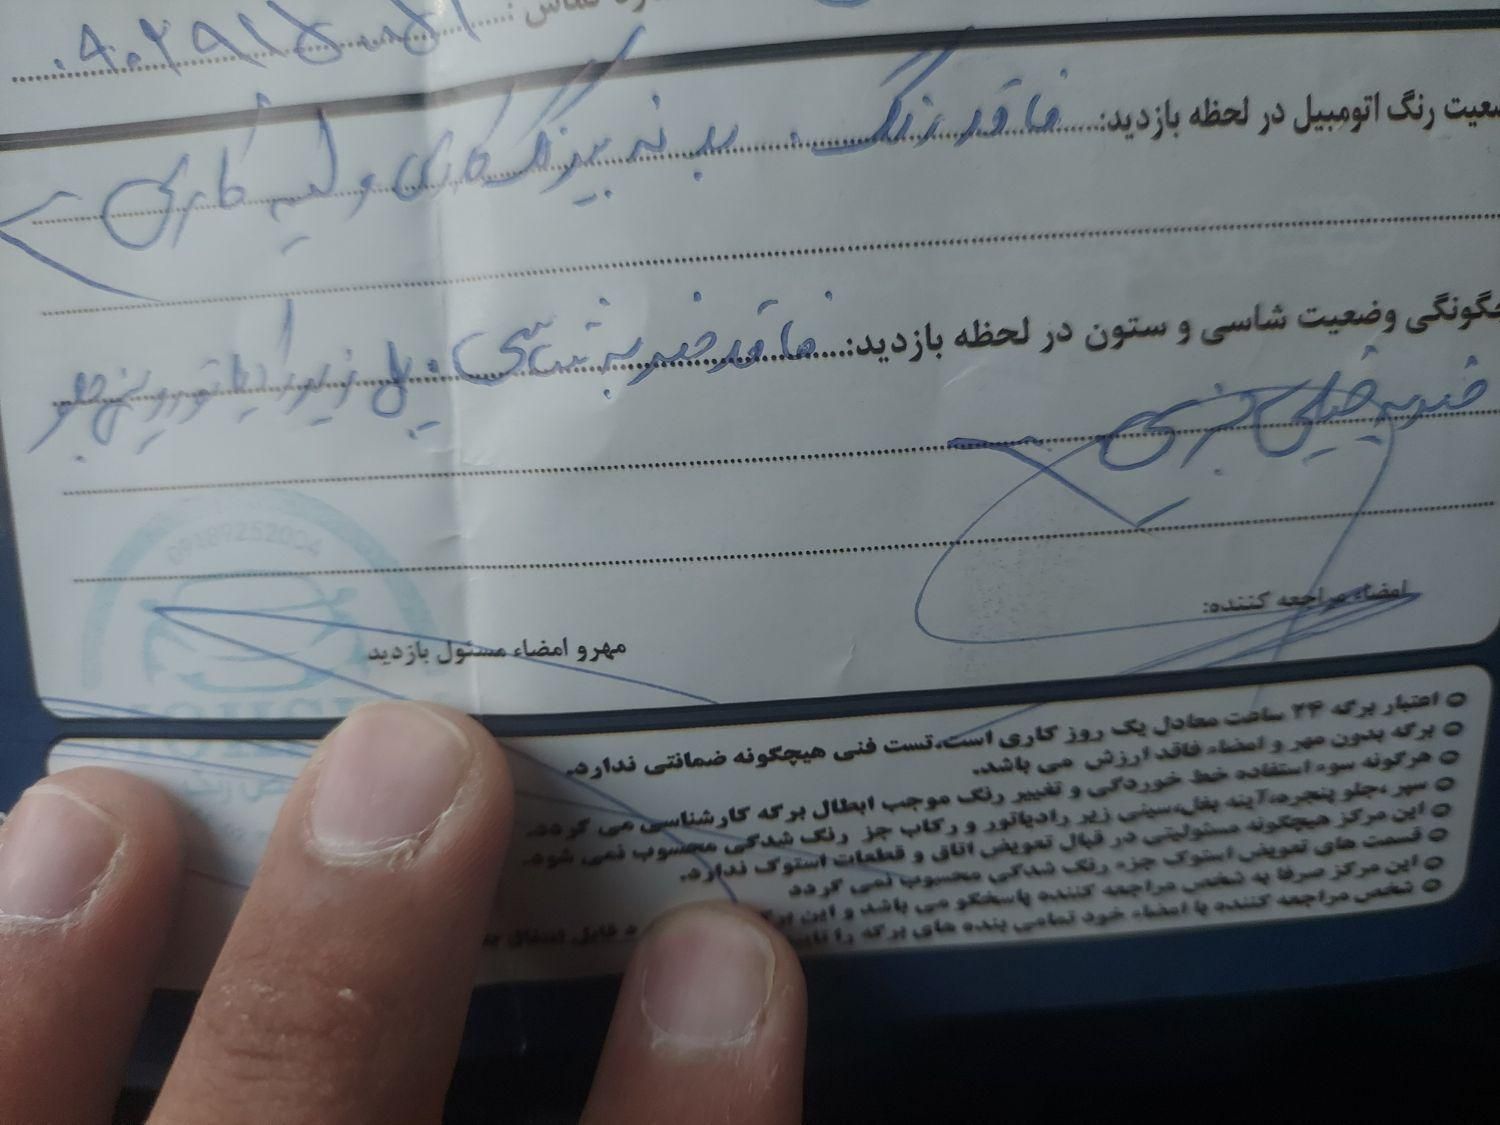 ۰۹۰۲۹۱۵۰۵۱
وضعیت رنگ اتومبیل در لحظه بازدید: فاقد رنگ . بدنه بیرنگ کاری و لیسه کاری
چگونگی وضعیت شاسی و ستون در لحظه بازدید: فاقد ضربه شاسی . پل زیر رادیاتور و سینی جلو
ضربه خیلی جزیی
09189252004
امضاء مراجعه کننده:
مهر و امضاء مسئول بازدید
اعتبار برگه ۲۴ ساعت معادل یک روز کاری است،تست فنی هیچگونه ضمانتی ندارد.
برگه بدون مهر و امضاء فاقد ارزش می باشد.
هرگونه سوء استفاده خط خوردگی و تغییر رنگ موجب ابطال برگه کارشناسی می گردد.
سپر ،جلو پنجره،آینه بغل،سینی زیر رادیاتور و رکاب جز رنگ شدگی محسوب نمی شود.
این مرکز هیچگونه مسئولیتی در قبال تعویض اتاق و قطعات استوک ندارد.
قسمت های تعویض استوک جزء رنگ شدگی محسوب نمی گردد
این مرکز صرفا به شخص مراجعه کننده پاسخگو می باشد و این
شخص مراجعه کننده با امضاء خود تمامی بنده های برگه را